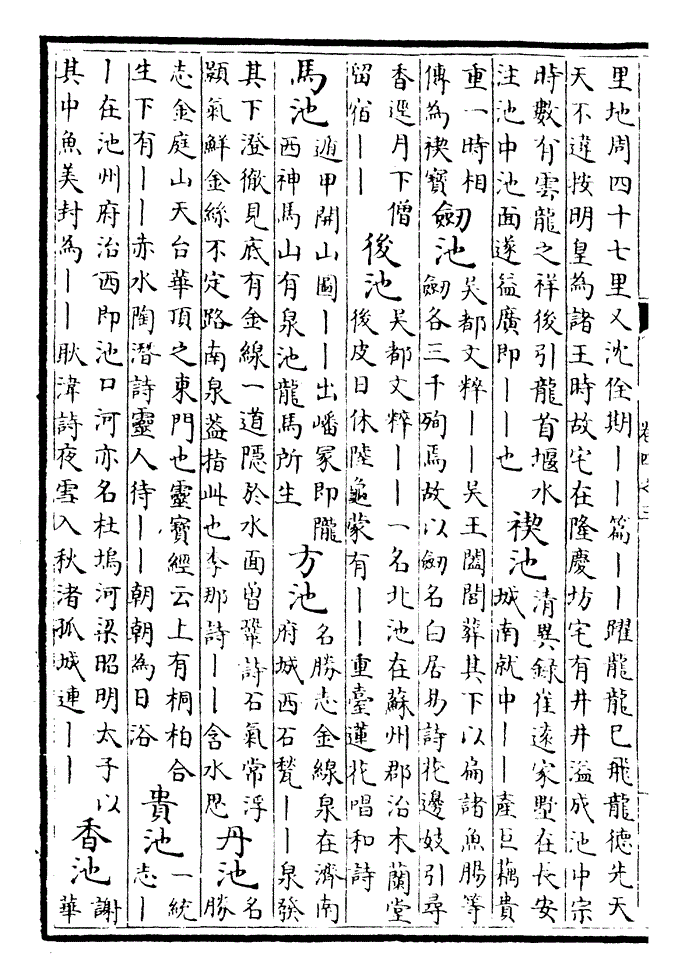 里地周四十七里又沈佺期丨丨篇丨丨躍龍龍已飛龍德先天
天不違按明皇為諸王時故宅在隆慶坊宅有井井溢成池中宗
時數有雲龍之祥後引龍首堰水
注池中池面遂益廣即丨丨也
禊池
清異錄崔遠家墅在長安
城南就中丨丨產巨藕貴
重一時相
傳為禊寶
劒池
吳都文粹丨丨吳王闔閭葬其下以扁諸魚腸等
劒各三千殉焉故以劒名白居易詩花邊妓引尋
香逕月下僧
留宿丨丨
後池
吳都文粹丨丨一名北池在蘇州郡治木蘭堂
後皮日休陸龜蒙有丨丨重臺蓮花唱和詩
馬池
遁甲開山圖丨丨出嶓冢即隴
西神馬山有泉池龍馬所生
方池
名勝志金線泉在濟南
府城西石甃丨丨泉發
其下澄徹見底有金線一道隱於水面曾鞏詩石氣常浮
顥氣鮮金絲不定路南泉葢指此也李那詩丨丨含水思
丹池
名
勝
志金庭山天台華頂之東門也靈寶經云上有桐柏合
生下有丨丨赤水陶潛詩靈人侍丨丨朝朝為日浴
貴池
一統
志丨
丨在池州府治西即池口河亦名杜塢河梁昭明太子以
其中魚美封為丨丨耿湋詩夜雪入秋渚孤城連丨丨
香池
謝
華